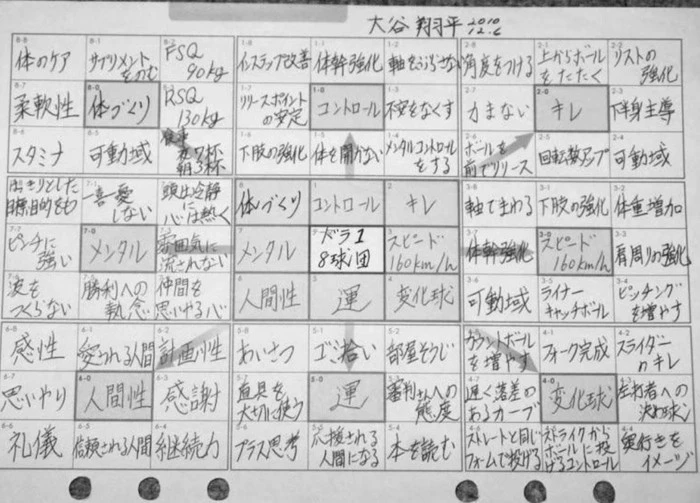 大谷 翔平 2010
12.6
体のケア
サプリメント
をのむ
FSQ
90kg
柔軟性
体づくり
RSQ
130kg
スタミナ
可動域
食事
夜7杯
朝3杯
インステップ改善
体幹強化
軸をぶらさない
リリースポイント
の安定
コントロール
不安をなくす
下肢の強化
体を開かない
メンタルコントロール
をする
角度をつける
上からボール
をたたく
リストの
強化
力まない
キレ
下半身主導
ボールを
前でリリース
回転数アップ
可動域
はっきりとした
目標、目的をもつ
一喜一憂
しない
頭は冷静に
心は熱く
ピンチに
強い
メンタル
雰囲気に
流されない
波を
つくらない
勝利への
執念
仲間を
思いやる心
体づくり
コントロール
キレ
メンタル
ドラ1
8球団
スピード
160km/h
人間性
運
変化球
軸でまわる
下肢の強化
体重増加
体幹強化
スピード
160km/h
肩周りの強化
可動域
ライナー
キャッチボール
ピッチング
を増やす
感性
愛される人間
計画性
思いやり
人間性
感謝
礼儀
信頼される人間
継続力
あいさつ
ゴミ拾い
部屋そうじ
道具を
大切に使う
運
審判さんへの
態度
プラス思考
応援される
人間になる
本を読む
カウントボール
を増やす
フォーク完成
スライダー
のキレ
遅く落差の
あるカーブ
変化球
左打者への
決め球
ストレートと同じ
フォームで投げる
ストライクから
ボールに投げ
るコントロール
奥行きを
イメージ